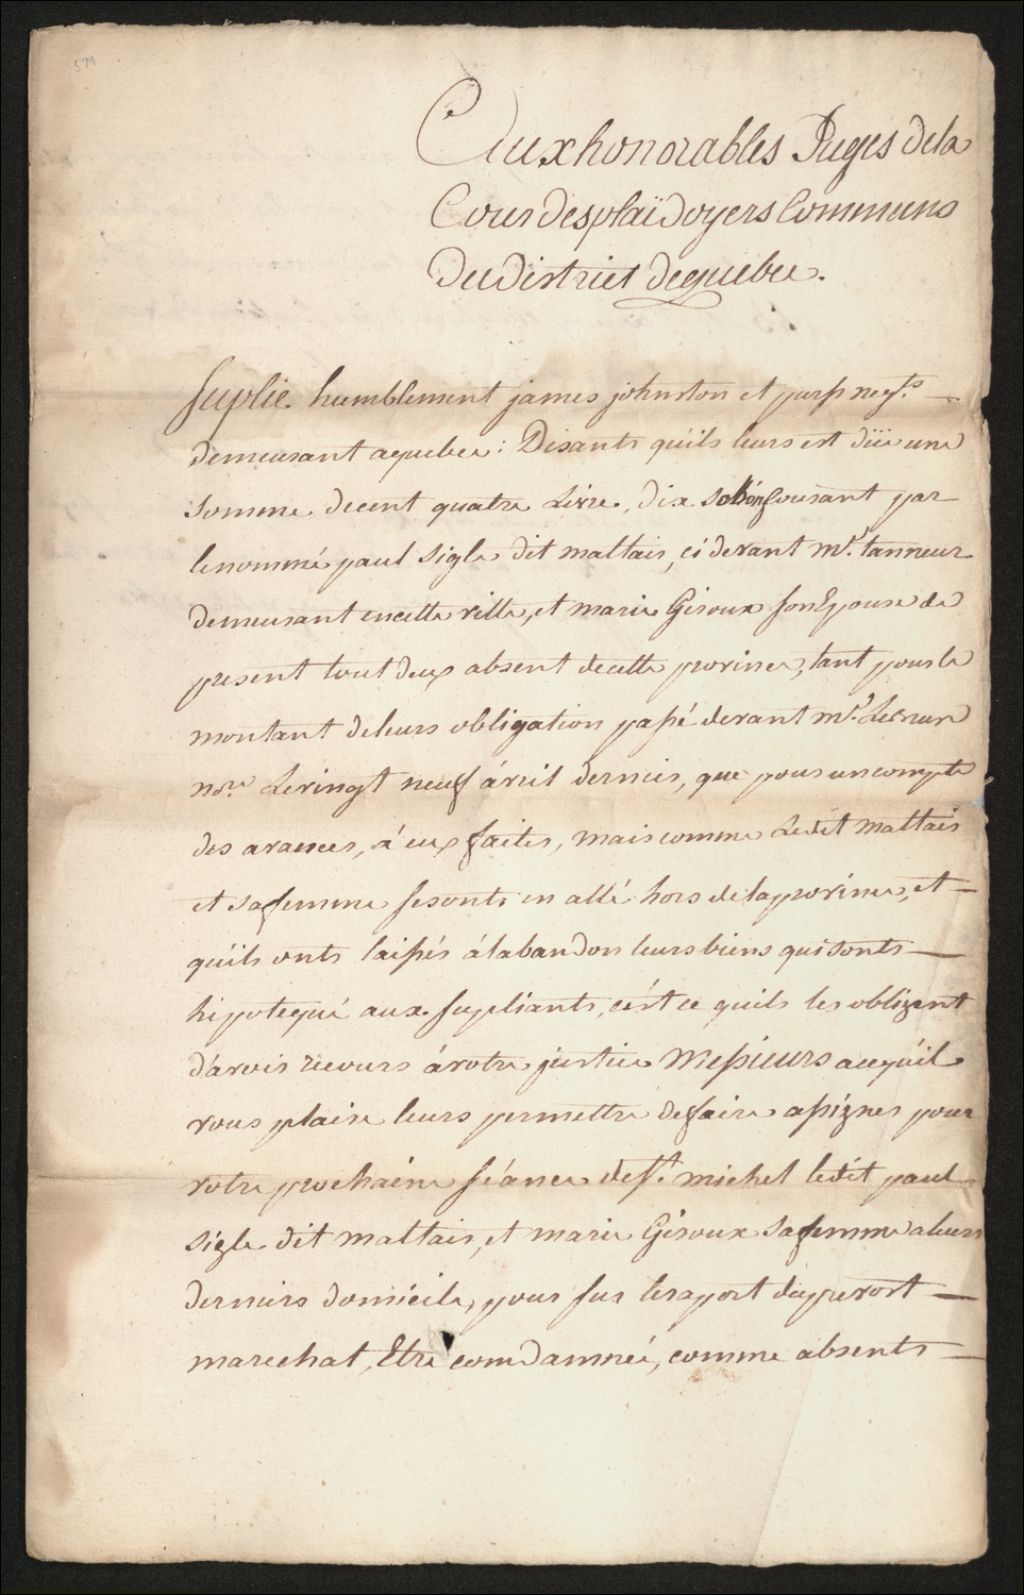 579
Aux honorables Juges de la
Cour des plaïdoyers Communs
Du District de quebec.
Suplie humblement james johnston et purss neg.ts
demeurant a quebec : Disants quïls leurs est düe une
somme de cent quatre Livre, dix courant par
le nommé paul sigle dit maltais, ci devant m.e tanneur
demeurant en cette ville, et marie Giroux son Epouse de
present tout deux absent de cette province, tant pour le
montant de leurs obligation passé devant m.e
no.re Le vingt neuf ávril dernier, que pour un compte
des avances, á eux faites, mais comme Ledit maltais
et sa femme se sonts en allé hors de la province, et
qúils onts laissés á labandon leurs biens qui sonts
hipotequé aux supliants, cést ce quils les obligent
dávoir recours á votre justice Messieurs a ce qúil
vous plaise leurs permettre de faire assigner pour
votre prochaine séance de S.t michel ledit paul
sigle dit maltais, et marie Giroux sa femme a leurs
derniers domicile, pour sur le raport du prevort
marechal, Etre comdamnée, comme absents